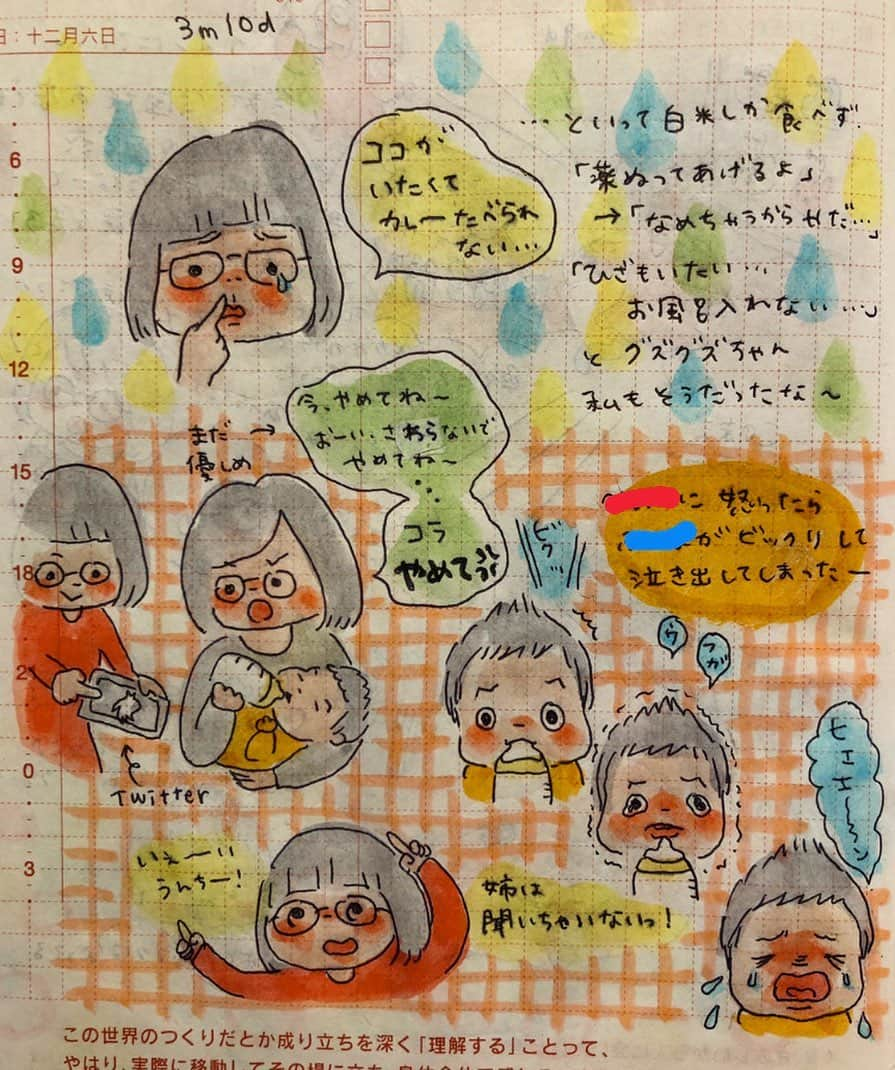 日：十二月六日
3m10d
ココが
いたくて
カレーたべられ
ない…
…といって白米しか食べず.
「薬ぬってあげるよ」
→「なめちゃうからやだ…」
「ひざもいたい…
お風呂入れない…」
とグズグズちゃん
私もそうだったな〜
6
9
12
15
18
21
0
3
まだ →
優しめ
今、やめてね〜
おーい、さわらないで
やめてね〜
コラ
やめて
に怒ったら
がビックリして
泣き出してしまったー
ビクッ…
Twitter
ウ
ヒエエ〜ン
いぇーい
うんちー!
姉は
聞いちゃいないっ!
この世界のつくりだとか成り立ちを深く「理解する」ことって、
やはり、実際に移動してその場に立ち、